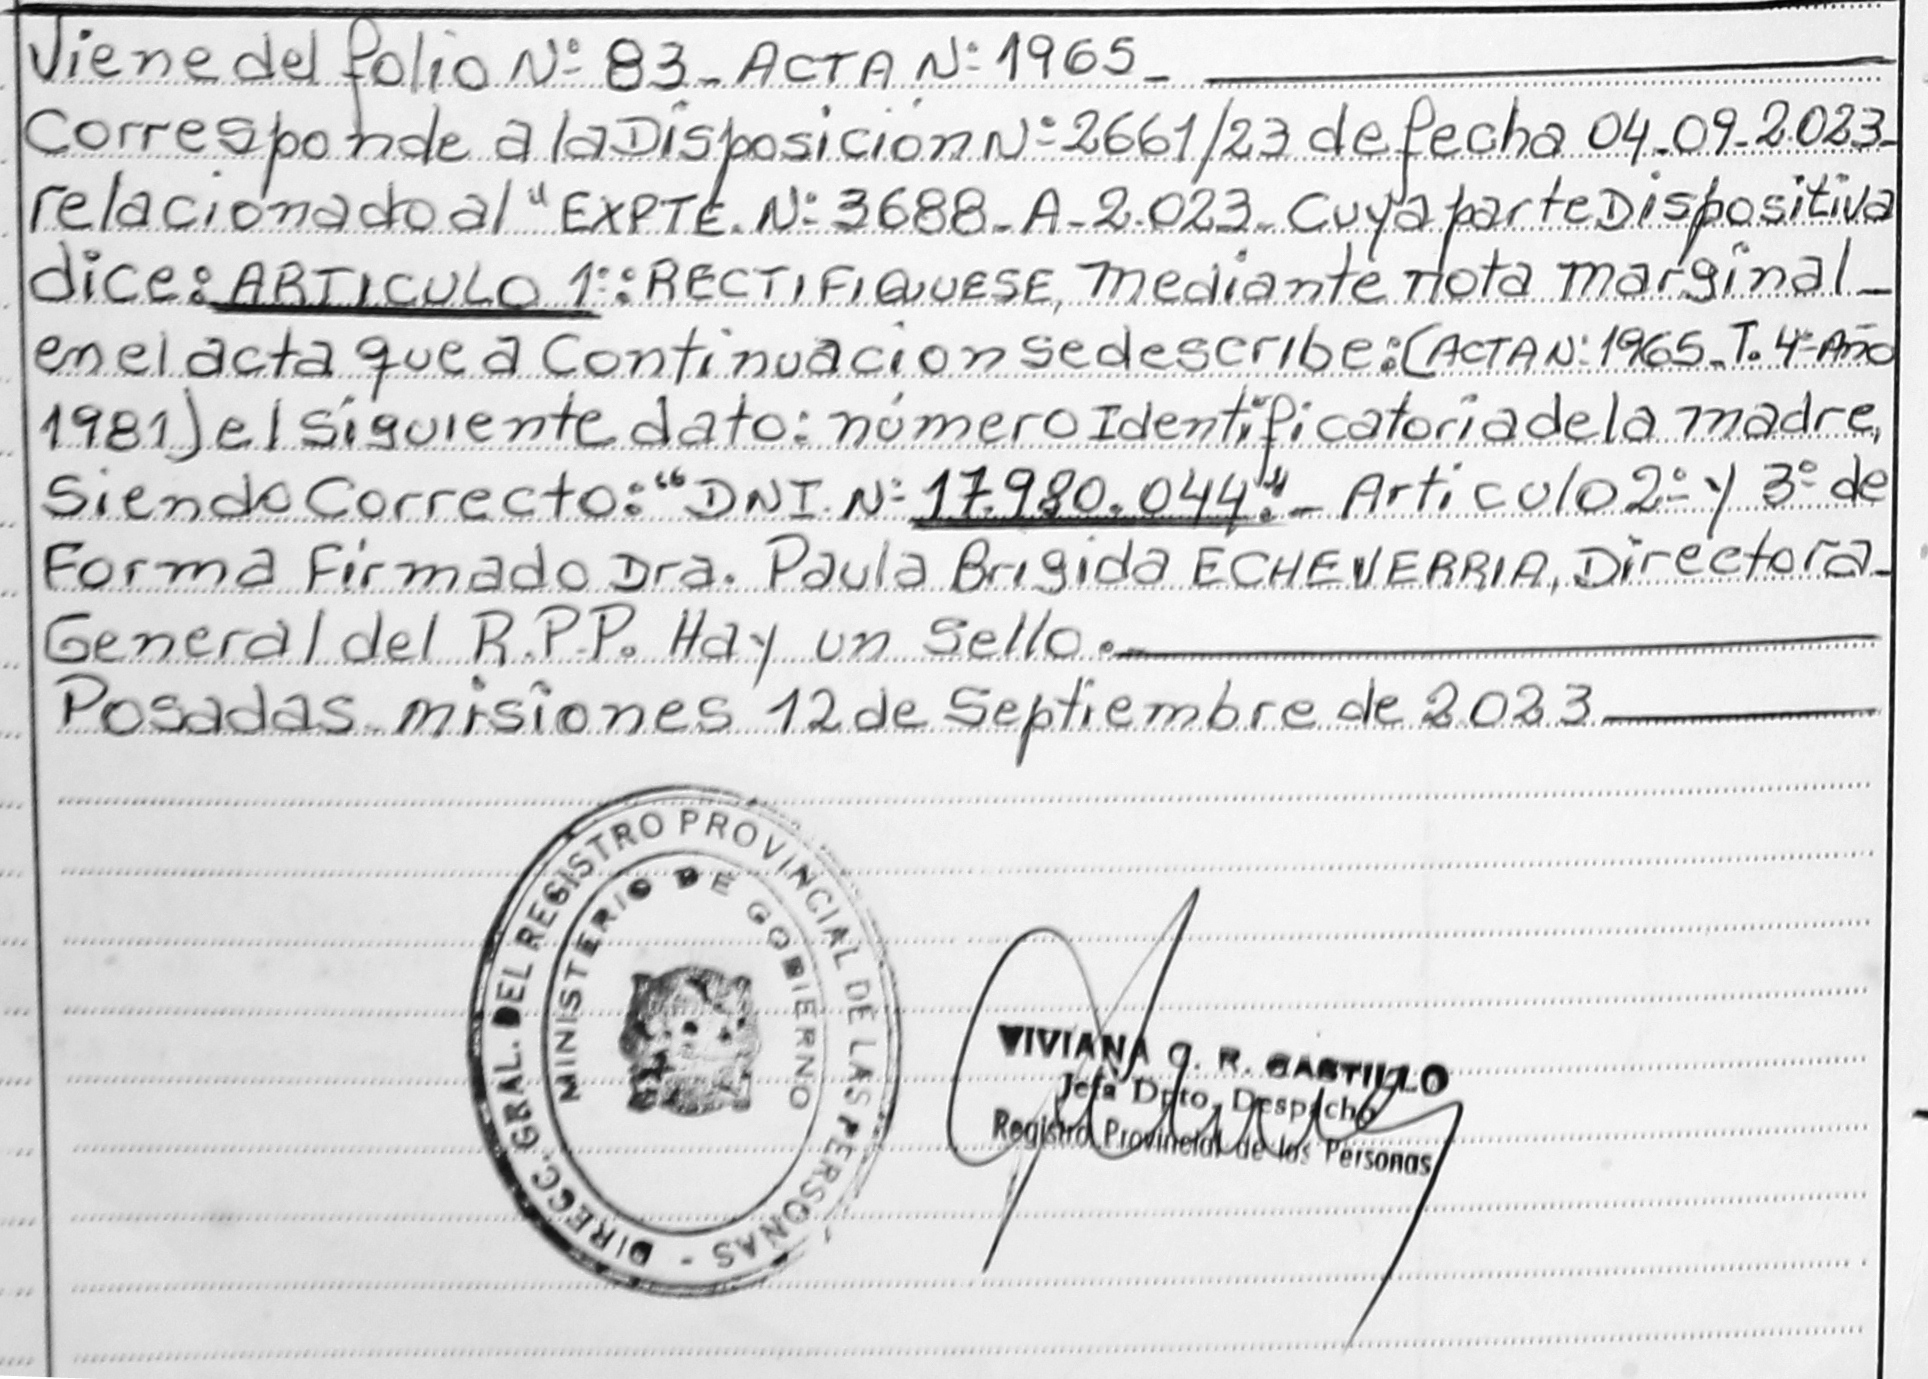 Viene del folio Nº 83 - ACTA Nº 1965 -
Corresponde a la Disposición Nº 2661/23 de fecha 04-09-2.023-
relacionado al "EXPTE. Nº 3688-A-2.023- Cuya parte Dispositiva
dice: ARTICULO 1º: RECTIFIQUESE, mediante nota marginal-
en el acta que a Continuacion se describe: (ACTA Nº 1965-T. 4º-Año
1981) el siguiente dato: número Identificatoria de la madre,
Siendo Correcto: "DNI. Nº 17.980.044".- Articulo 2º y 3º de
Forma Firmado Dra. Paula Brigida ECHEVERRIA, Directora-
General del R.P.P. Hay un Sello.-
Posadas misiones 12 de Septiembre de 2023
DIRECC. GRAL. DEL REGISTRO PROVINCIAL DE LAS PERSONAS -
MINISTERIO DE GOBIERNO
VIVIANA R. CASTILLO
Jefa Dpto. Despacho
Registro Provincial de las Personas